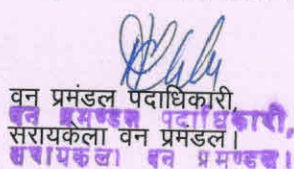 वन प्रमंडल पदाधिकारी,
वन प्रमण्डल पदाधिकारी,
सरायकेला वन प्रमंडल।
सरायकेला वन प्रमण्डल।